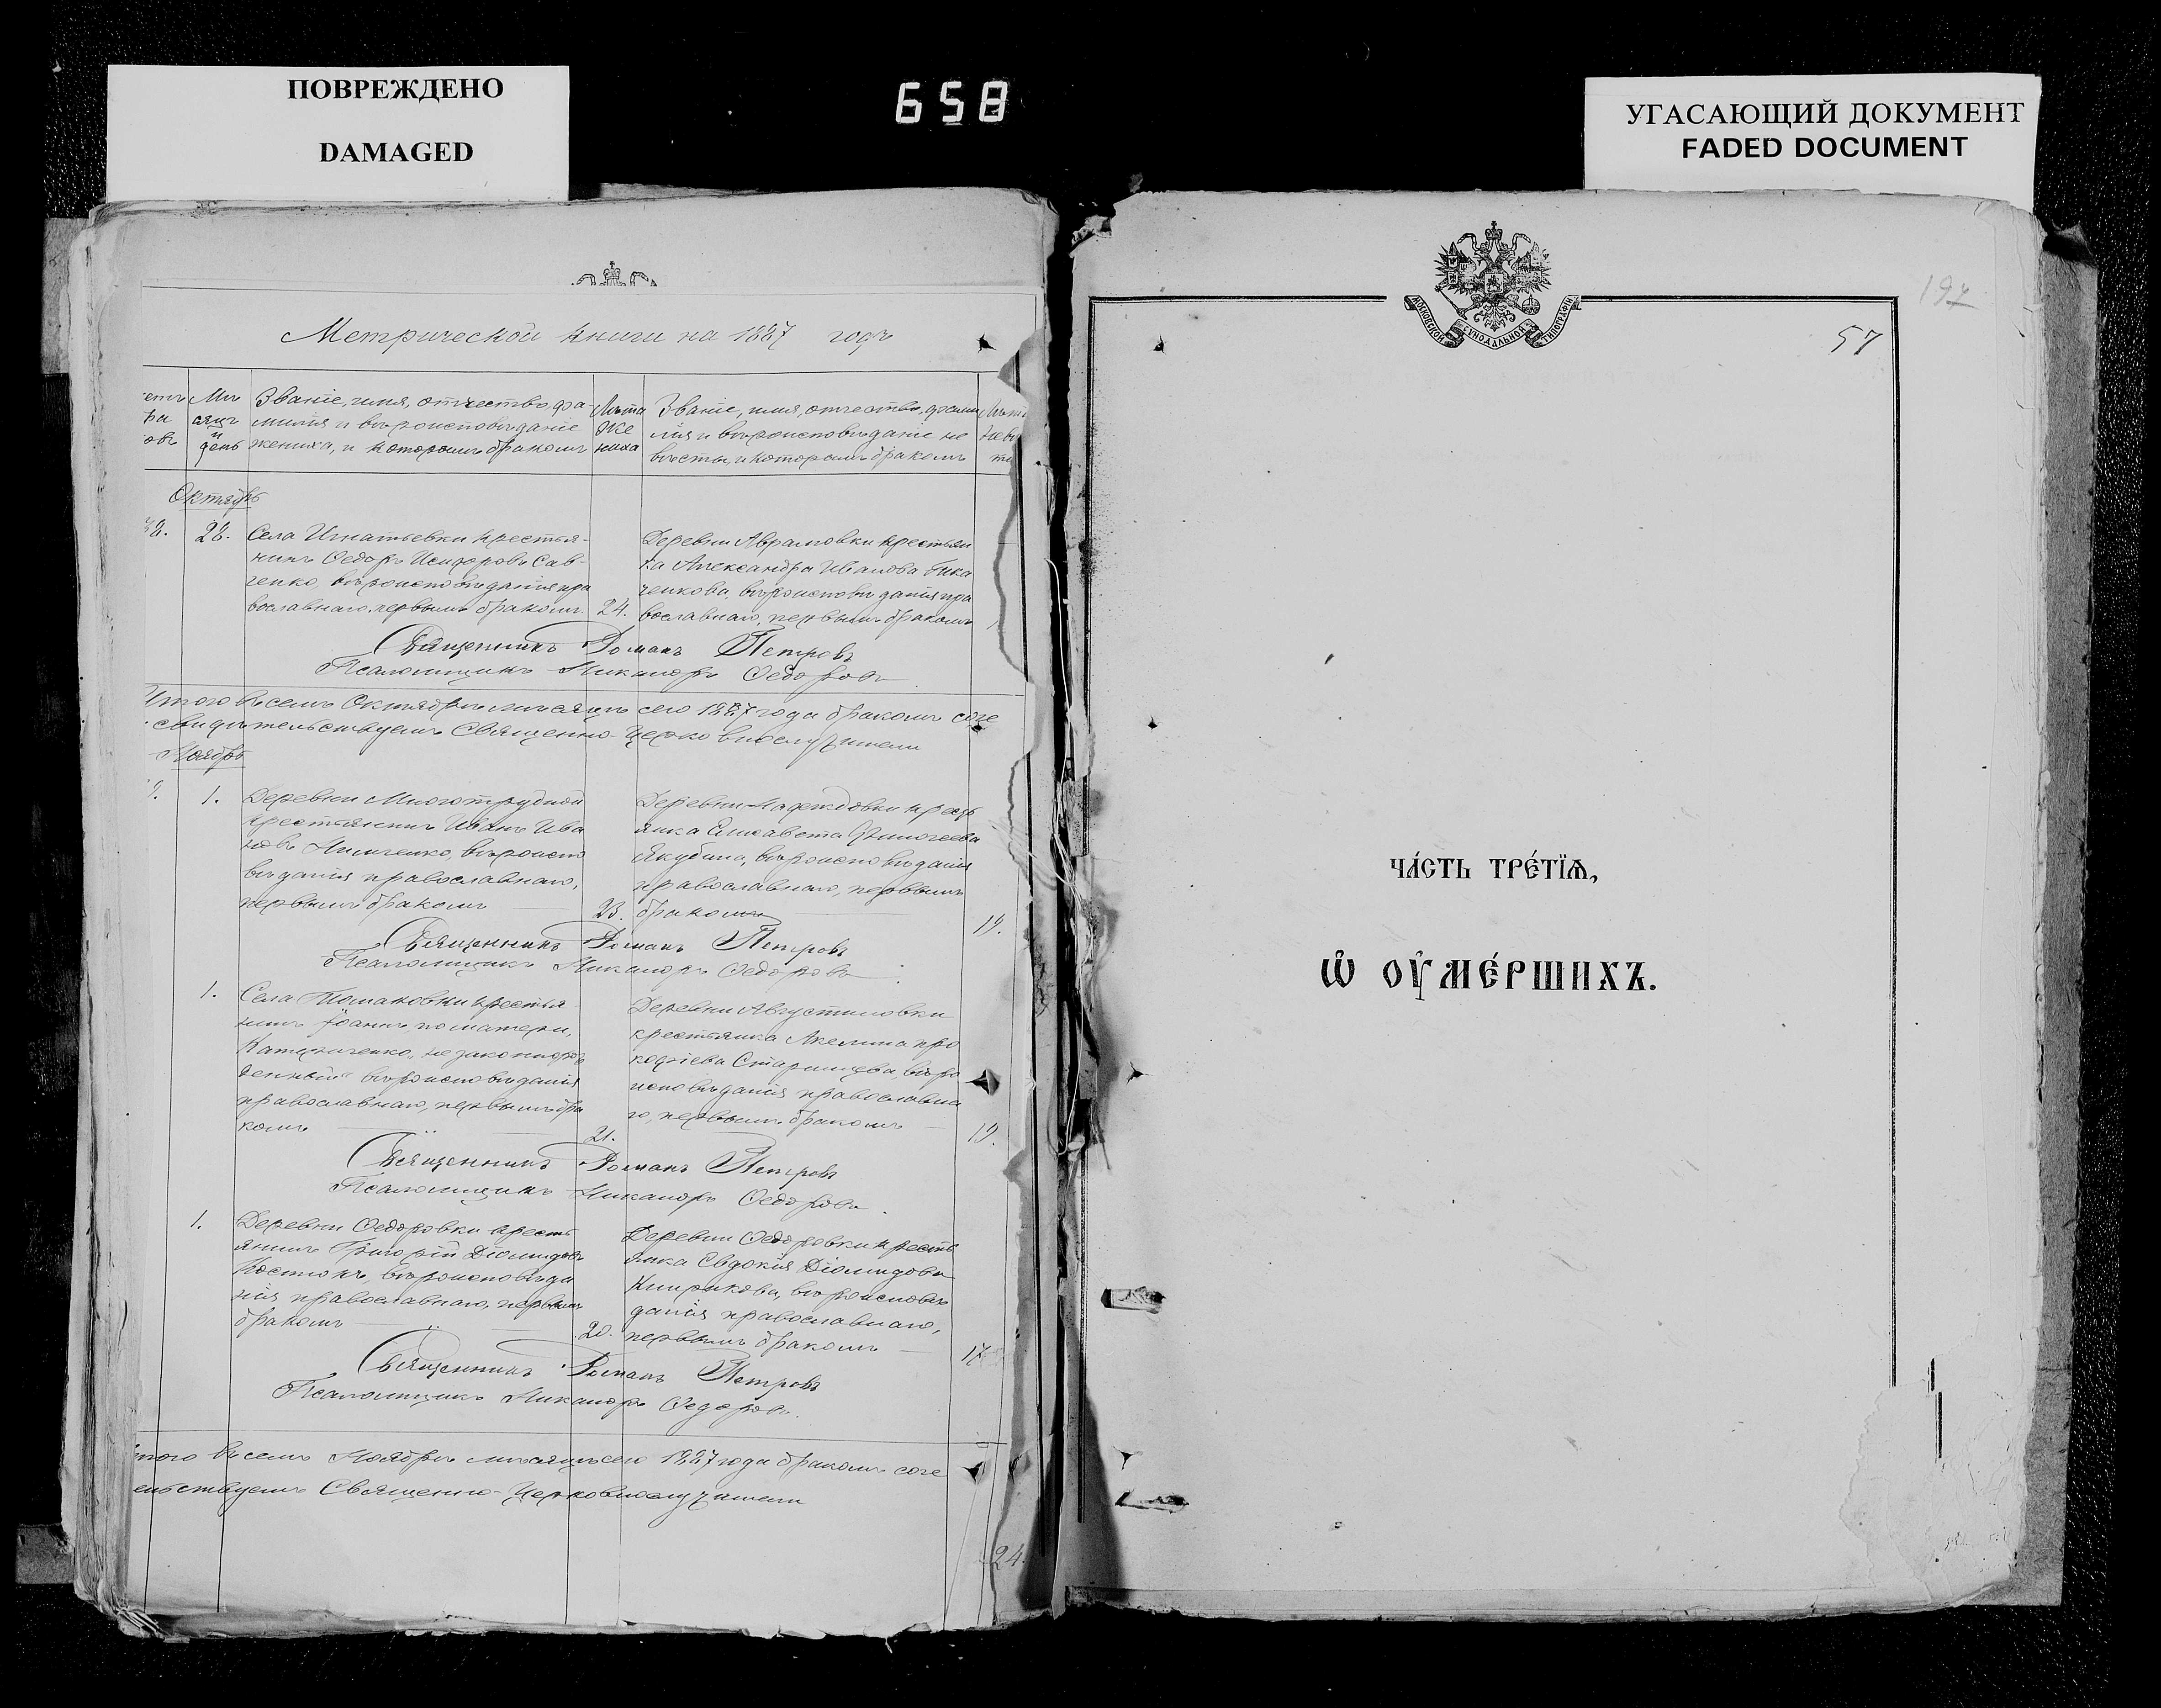 ПОВРЕЖДЕНО
DAMAGED
658
УГАСАЮЩИЙ ДОКУМЕНТ
FADED DOCUMENT
Метрической книги на 1887 годъ
Мѣ
сяцъ
и
день
Званіе, имя, отчество, фа-
милія и вѣроисповѣданіе
жениха, и которымъ бракомъ
Лѣта
же
ниха
Званіе, имя, отчество, фами
лія и вѣроисповѣданіе не
вѣсты, и которымъ бракомъ
Октябрь
28.
Села Игнатьевки крестья-
нинъ Ѳедоръ Исидоровъ Сав-
ченко, вѣроисповѣданія пра
вославнаго, первымъ бракомъ.
24.
Деревни Аврамовки крестьян
ка Александра Иванова
вѣроисповѣданія пра
вославнаго, первымъ бракомъ
Священникъ Романъ Петровъ
Псаломщикъ Никаноръ Ѳедоровъ
Итого въ семъ Октябрѣ мѣсяцѣ сего 1887 года бракомъ соче
свидѣтельствуемъ Священно-Церковнослужители
Ноябрь
1.
Деревни Многотрудной
крестьянинъ Иванъ Ива
новъ вѣроиспо
вѣданія православнаго,
первымъ бракомъ
23.
Деревни Надеждовки кресть
янка Елисавета Тимоѳеева
Якубина, вѣроисповѣданія
православнаго, первымъ
бракомъ
19.
Священникъ Романъ Петровъ
Псаломщикъ Никаноръ Ѳедоровъ
1.
Села Томаковки крестья
нинъ Іоаннъ по матери,
незаконнорож
денный вѣроисповѣданія
православнаго, первымъ бра
комъ
21.
Деревни Августиновки
крестьянка Акелина Про
кофіева вѣро
исповѣданія православна
го, первымъ бракомъ
19.
Священникъ Романъ Петровъ
Псаломщикъ Никаноръ Ѳедоровъ
1.
Деревни Ѳедоровки кресть
янинъ Григорій Діомидовъ
Костюкъ, вѣроисповѣда
нія православнаго, первымъ
бракомъ
20.
Деревни Ѳедоровки кресть
янка Евдокія Діомидова
Кирикова, вѣроисповѣ
данія православнаго,
первымъ бракомъ
17
Священникъ Романъ Петровъ
Псаломщикъ Никаноръ Ѳедоровъ
Итого въ семъ Ноябрѣ мѣсяцѣ сего 1887 года бракомъ соче
ельствуемъ Священно-Церковнослужители
24.
МОСКОВСКОЙ СѴНОДАЛЬНОЙ ТИПОГРАФІИ
197
57
ЧА́СТЬ ТРЕ́ТЇѦ,
Ѡ҆ ОУ҆МЕ́РШИХЪ.